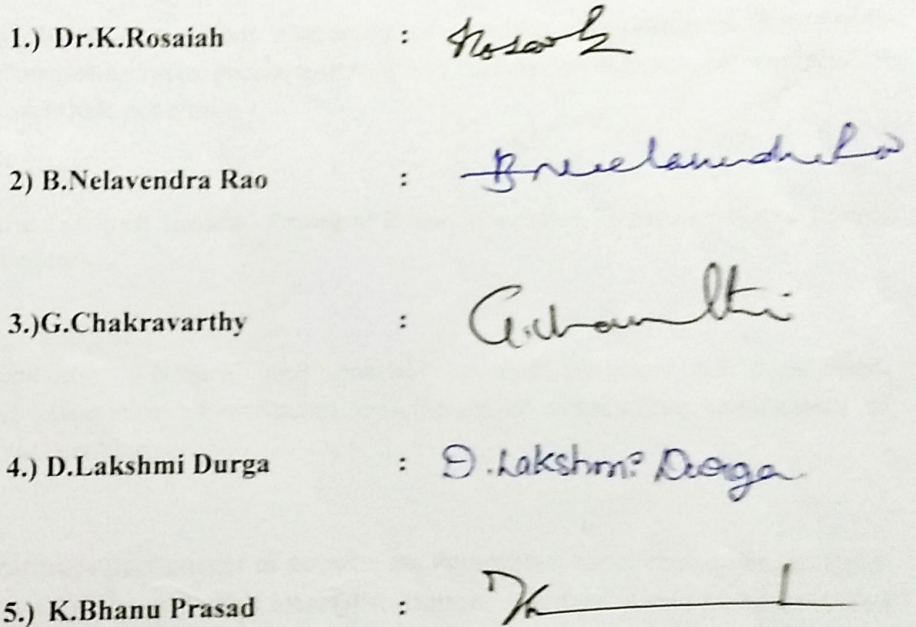 1.) Dr.K.Rosaiah : Rosaiah
2) B.Nelavendra Rao : B Neelavendra Rao
3.)G.Chakravarthy :
4.) D.Lakshmi Durga : D.Lakshmi Durga
5.) K.Bhanu Prasad :